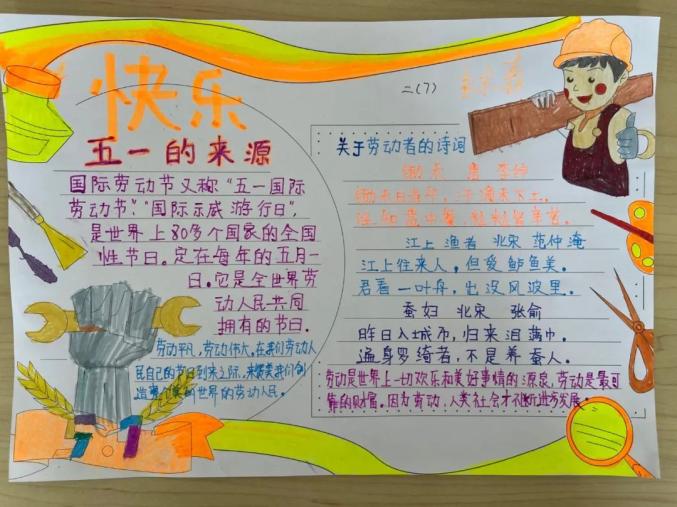 快乐
二(7)
五一的来源
国际劳动节又称“五一国际
劳动节”、“国际示威游行日”,
是世界上80多个国家的全国
性节日。定在每年的五月一
日。它是全世界劳
动人民共同
拥有的节日。
劳动平凡，劳动伟大。在我们劳动人
民自己的节日到来之际，来赞美我们创
造整个美的世界的劳动人民。
关于劳动者的诗词
江上渔者 北宋 范仲淹
江上往来人，但爱鲈鱼美。
君看一叶舟，出没风波里。
蚕妇 北宋 张俞
昨日入城市，归来泪满巾。
遍身罗绮者，不是养蚕人。
劳动是世界上一切欢乐和美好事情的源泉，劳动是最可
靠的财富。因为劳动，人类社会才不断进步发展。